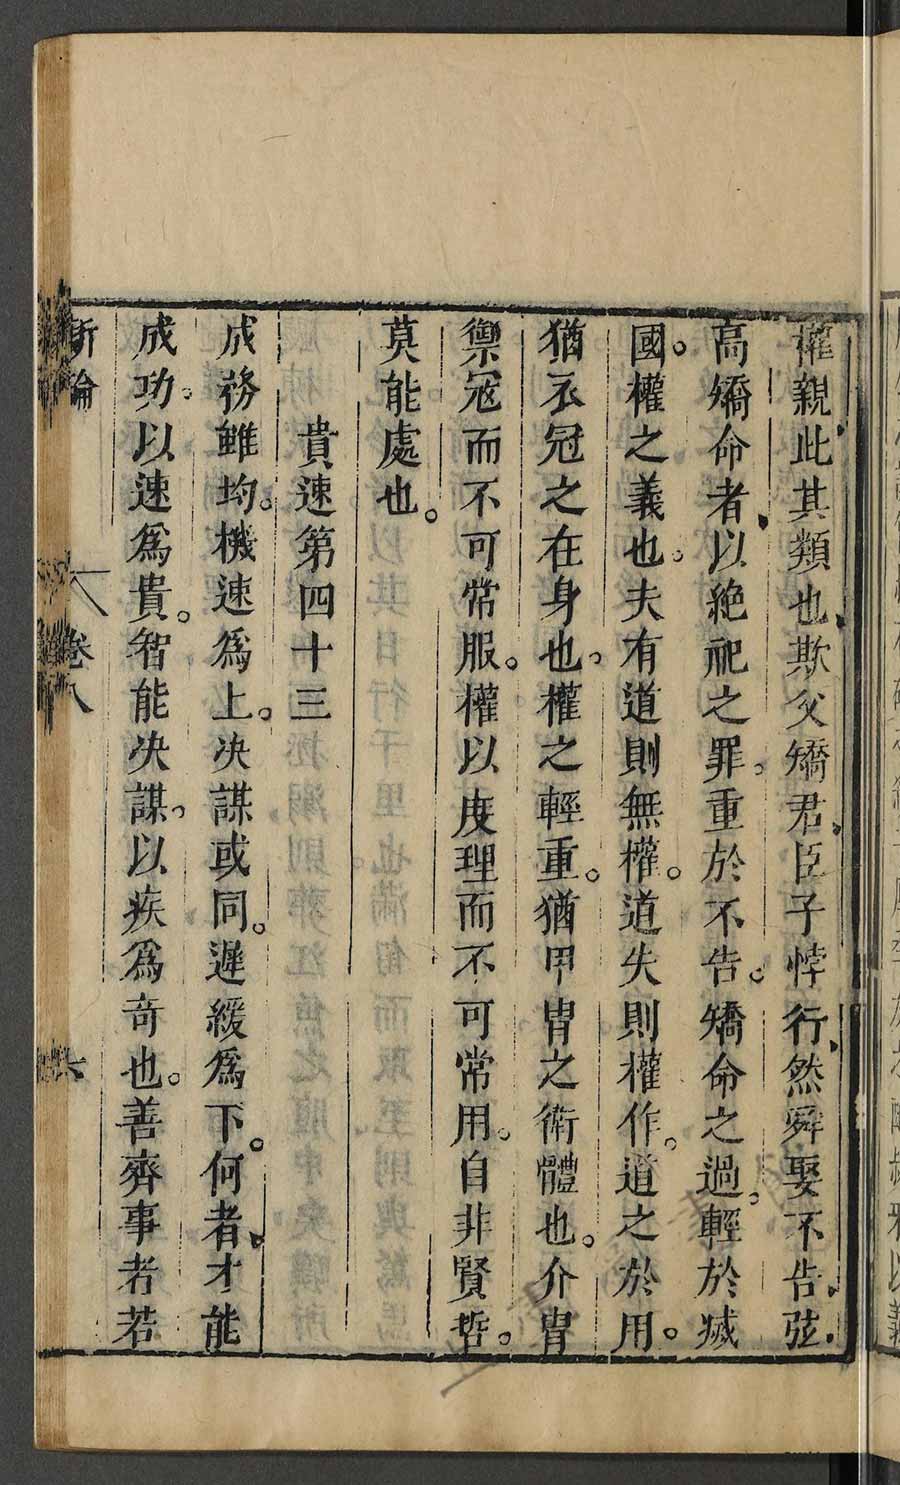 權親此其類也欺父矯君臣子悖行然舜娶不告弦
高矯命者以絶祀之罪重於不告矯命之過輕於㓕
國。權之義也。夫有道則無權。道失則權作。道之於用。
猶衣冠之在身也。權之輕重。猶甲冑之衛體也。介冑
禦寇而不可常服。權以度理而不可常用。自非賢哲。
莫能處也。
貴速第四十三
成務雖均。機速爲上。决謀或同。遲緩爲下。何者才能
成功。以速爲貴。智能决謀。以疾爲奇也。善齊事者若
新論
卷八
六